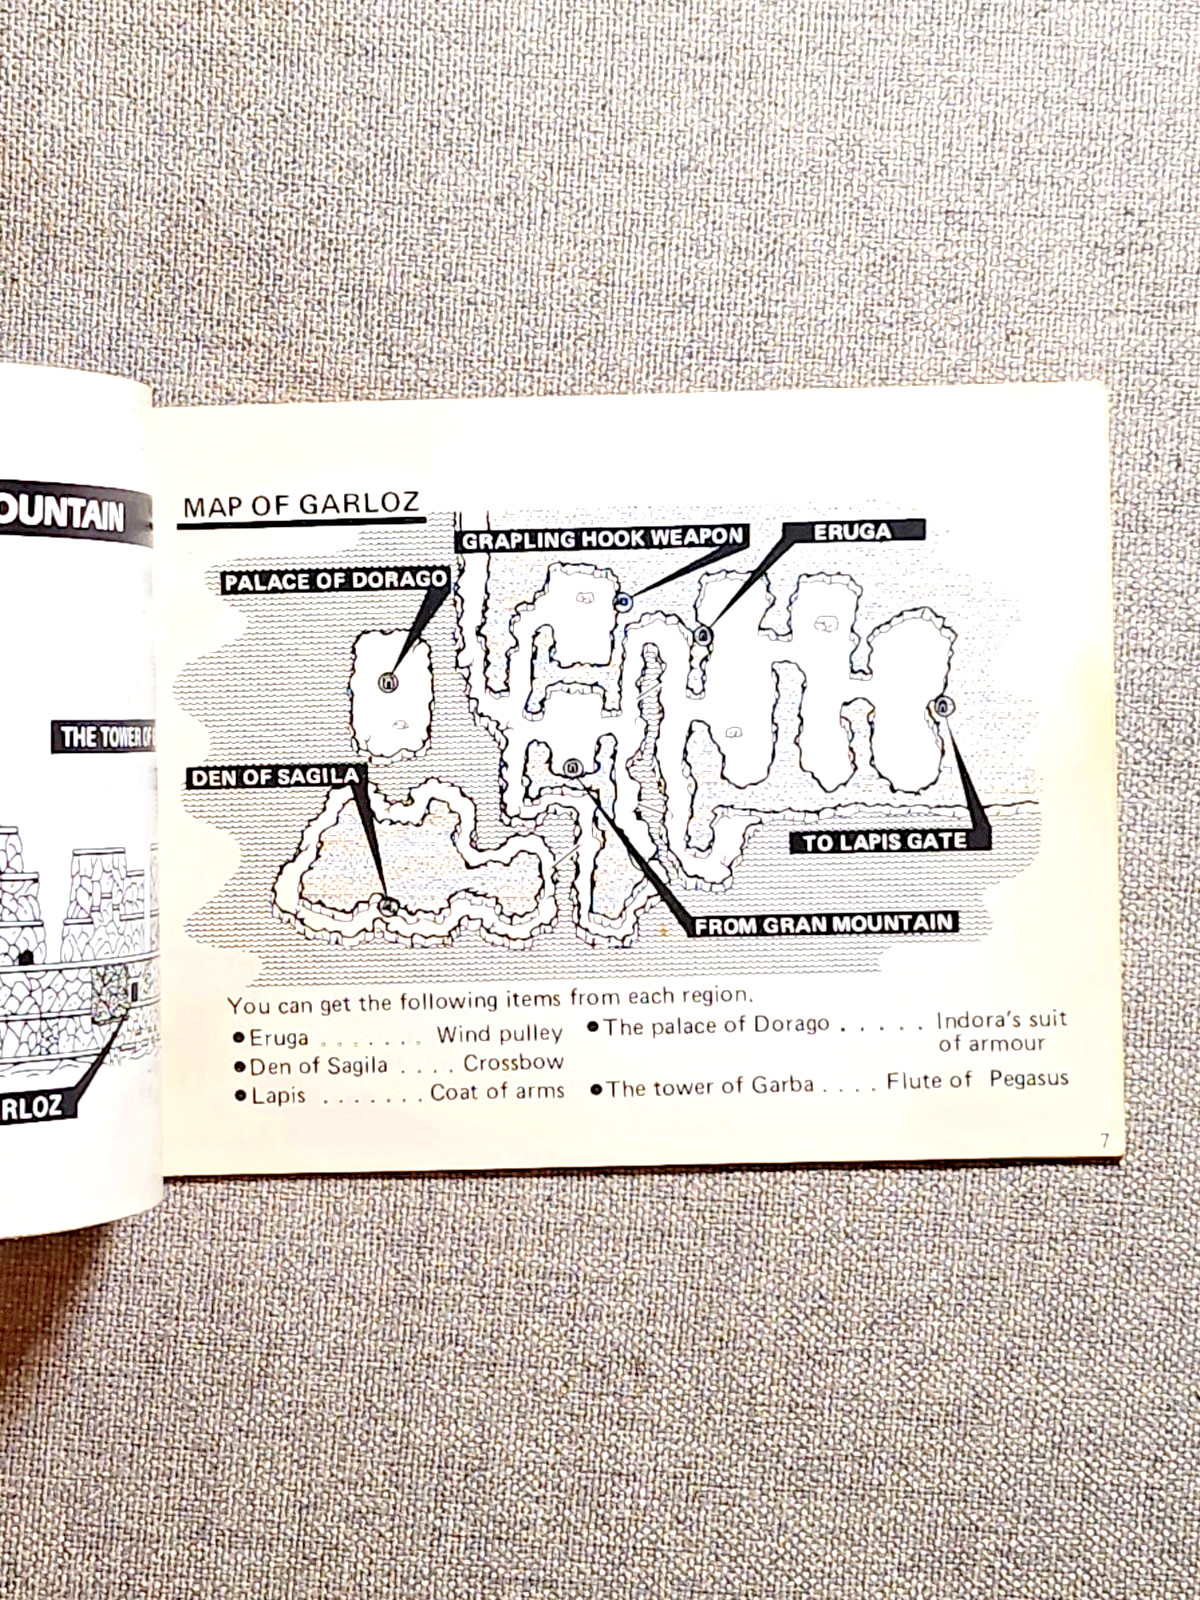 OUNTAIN
THE TOWER OF
RLOZ
MAP OF GARLOZ
GRAPLING HOOK WEAPON
ERUGA
PALACE OF DORAGO
DEN OF SAGILA
TO LAPIS GATE
FROM GRAN MOUNTAIN
You can get the following items from each region.
●Eruga ....... Wind pulley
●Den of Sagila .... Crossbow
●Lapis ....... Coat of arms
●The palace of Dorago ..... Indora's suit
of armour
●The tower of Garba .... Flute of Pegasus
7